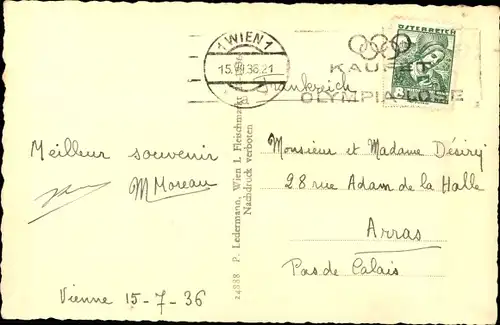 1 WIEN 1
15.VII.36.21
KAUFET
OLYMPIA-LOSE
ÖSTERREICH
Frankreich
Meilleur souvenir
M Moreau
Vienne 15-7-36
24888 P. Ledermann, Wien I, Fleischmarkt
Nachdruck verboten
Monsieur et Madame Désiry
28 rue Adam de la Halle
Arras
Pas de Calais